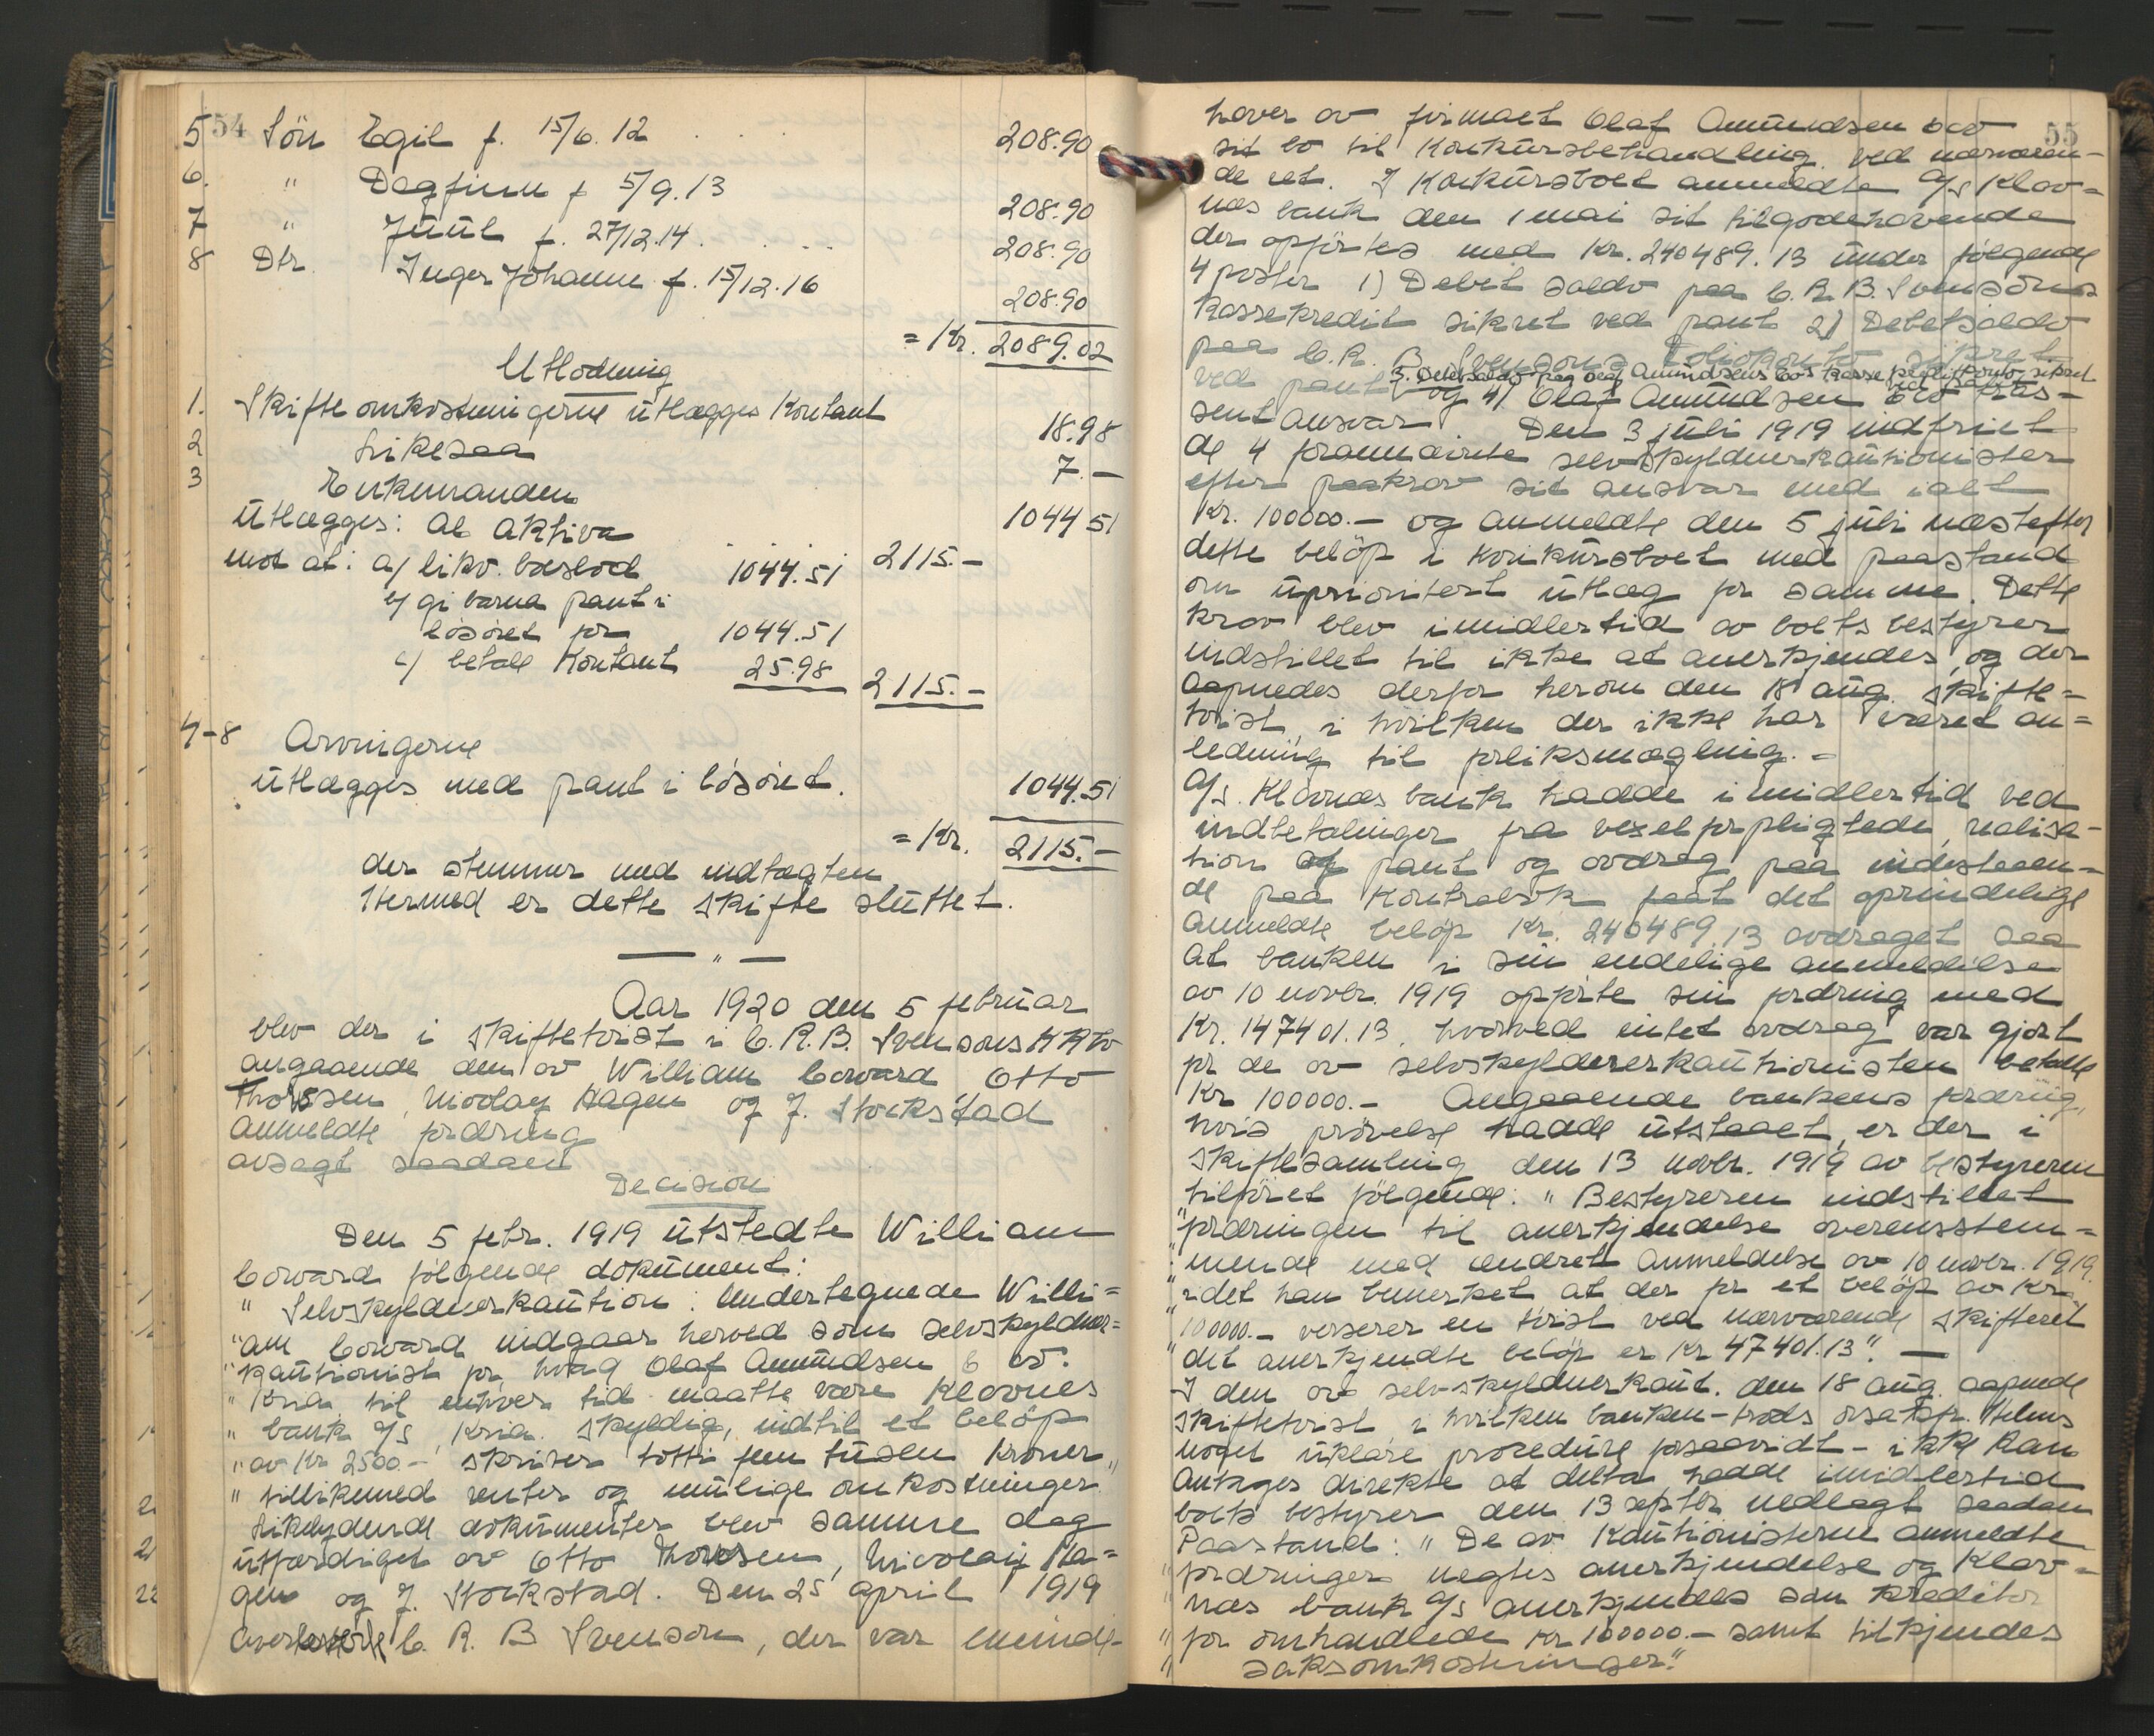 54
5 Sön Egil f. 15/6.12 208.90
6. " Dagfinn f 5/9.13 208.90
7 " Juul f. 27/12.14. 208.90
8 Dtr. Inger Johanne f. 15/12.16 208.90
= Kr. 2089.02
Utlodning
1. Skifteomkostningerne utlægges Kontant 18.98
2 Likesaa 7.–
3 Enkemanden 1044 51
Utlægges: al aktiva 2115.–
mot at: a) likv. boslod 1044.51
b) gi barna pant i
lösöret for 1044.51
c) betale Kontant 25.98 2115.–
4-8 Arvingerne
utlægges med pant i lösöret. 1044.51
= Kr. 2115.–
der stemmer med indtægten
Hermed er dette skifte sluttet.
— " —
Aar 1920 den 5 februar
blev der i skiftetvist i C.R.B. Svensons KKbo
angaaende den av William Coward Otto
Thoresen, Nicolay Hagen og J. Stockstad
anmeldte fordring
avsagt saadan
Decision
Den 5 febr. 1919 utstedte William
Coward fölgende dokument:
" Selvskyldnerkaution: Undertegnede Willi=
"am Coward indgaar herved som selvskyldner=
"kautionist for, hvad Olaf Amundsen & co.
" Kria. til enhver tid maatte være Klovnes
" bank A/S, Kria. skyldig, indtil et belöp
" av Kr 2500.– skriver totti fem tusen Kroner "
" tillikemed renter og mulige omkostninger.
Likelydende dokumenter blev samme dag
utfærdiget av Otto Thoresen, Nicolay Ha=
gen og J. Stockstad. Den 25 april 1919
C. R. B Svenson, der var eneinde-
55
haver av firmaet Olaf Amundsen &co
sit bo til Konkursbehandling ved nærværen-
de ret. I Konkursboet anmeldte A/S Klov=
næs bank den 1 mai sit tilgodehavende
der opförtes med Kr. 240489.13 under fölgende
4 poster 1) Debet saldo paa C.R.B. Svensons
Kassekredit sikret ved pant 2) Debetsaldo
paa C.R. B. Svensons Foliokonto sikret
3. Debetsaldo paa Olaf Amundsens &co's Kassekreditkonto sikret ved pant
ved pant og 4) Olaf Amundsen &co tras-
sentansvar. Den 3 juli 1919 indfriet
de 4 forannævnte selvskyldnerkautionister
efter paakrav sit ansvar med ialt
Kr. 100000.– og anmeldte den 5 juli næstefter
dette belöp i Konkursboet med paastand
om uprioritert utlæg for samme. Dette
Krav blev imidlertid av boets bestyrer
indstillet til ikke at anerkjendes, og der
aapnedes derfor herom den 18 aug. skifte=
tvist, i hvilken der ikke har været an=
ledning til forliksmægling. –
A/S. Klovnæs bank hadde imidlertid ved
indbetalinger fra vexelforpligtede, realisa-
tion af pant og avdrag paa indestaaen-
de paa Kontrabok faat det oprindelige
anmeldte belöp Kr. 240489.13 avdraget saa
at banken i sin endelige anmeldelse
av 10 novbr. 1919 opförte sin fordring med
Kr. 147401.13, hvorved intet avdrag var gjort
for de av selvskyldnerkautionisten betalte
Kr 100000.– Angaaende bankens fordring,
hvis prövelse hadde utstaaet, er der i
skiftesamling den 13 novbr. 1919 av bestyreren
tilföiet fölgende: " Bestyreren indstillet
"fordringen til anerkjendelse overensstem=
"mende med ændret anmeldelse av 10 novbr. 1919.
"idet han bemerket at der for et belöp av Kr.
"100000.– verserer en tvist ved nærværende skifteret
"det anerkjendte belöp er Kr 47401.13". —
I den av selvskyldnerkaut. den 18 aug. aapnede
skiftetvist i hvilken banken – trods Helms
noget uklare procedure forsaavidt – ikke kan
antages direkte at delta hadde imidlertid
boets bestyrer den 13 septbr nedlagt saadan
Paastand: " De av Kautionisterne anmeldte
"fordringer negtes anerkjendelse og Klov=
"næs bank A/S anerkjendes som Kreditor
"for omhandlede Kr 100000.– samt tilkjendes
" saksomkostninger."